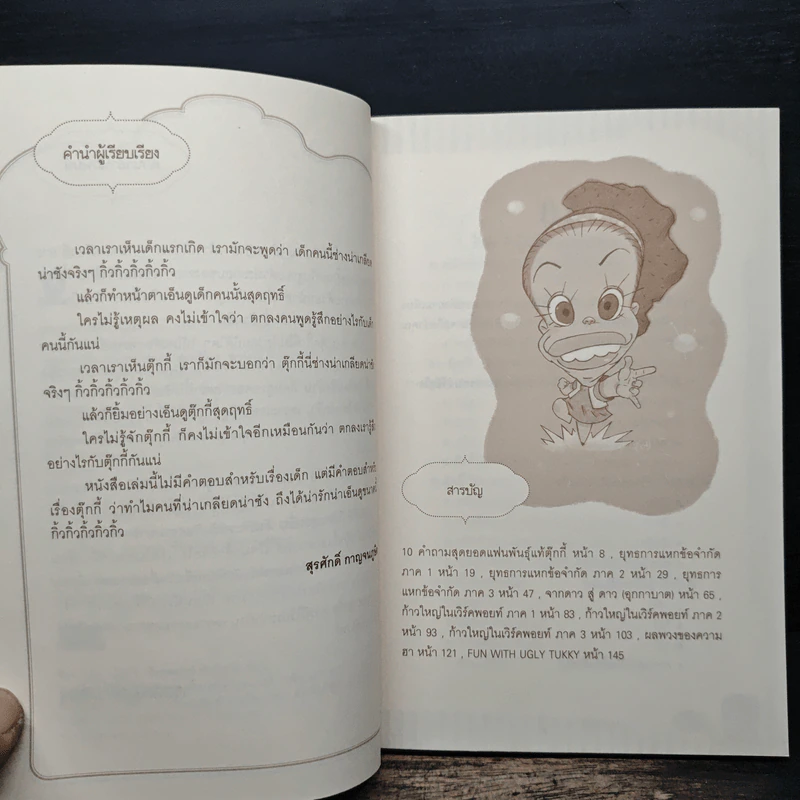 คำนำผู้เรียบเรียง
เวลาเราเห็นเด็กแรกเกิด เรามักจะพูดว่า เด็กคนนี้ช่างน่าเกลียด
น่าชังจริงๆ กิ้วกิ้วกิ้วกิ้วกิ้ว
แล้วก็ทำหน้าตาเอ็นดูเด็กคนนั้นสุดฤทธิ์
ใครไม่รู้เหตุผล คงไม่เข้าใจว่า ตกลงคนพูดรู้สึกอย่างไรกับ
คนนี้กันแน่
เวลาเราเห็นตุ๊กกี้ เราก็มักจะบอกว่า ตุ๊กกี้นี่ช่างน่าเกลียดน่าชัง
จริงๆ กิ้วกิ้วกิ้วกิ้วกิ้ว
แล้วก็ยิ้มอย่างเอ็นดูตุ๊กกี้สุดฤทธิ์
ใครไม่รู้จักตุ๊กกี้ ก็คงไม่เข้าใจอีกเหมือนกันว่า ตกลงเรา
อย่างไรกับตุ๊กกี้กันแน่
หนังสือเล่มนี้ไม่มีคำตอบสำหรับเรื่องเด็ก แต่มีคำตอบ
เรื่องตุ๊กกี้ ว่าทำไมคนที่น่าเกลียดน่าชัง ถึงได้น่ารักน่าเอ็นดู
กิ้วกิ้วกิ้วกิ้วกิ้ว
สุรศักดิ์
สารบัญ
10 คำถามสุดยอดแฟนพันธุ์แท้ตุ๊กกี้ หน้า 8 , ยุทธการแหกข้อจำกัด
ภาค 1 หน้า 19 , ยุทธการแหกข้อจำกัด ภาค 2 หน้า 29 , ยุทธการ
แหกข้อจำกัด ภาค 3 หน้า 47 , จากดาว สู่ ดาว (อุกกาบาต) หน้า 65 ,
ก้าวใหญ่ในเวิร์คพอยท์ ภาค 1 หน้า 83 , ก้าวใหญ่ในเวิร์คพอยท์ ภาค 2
หน้า 93 , ก้าวใหญ่ในเวิร์คพอยท์ ภาค 3 หน้า 103 , ผลพวงของความ
ฮา หน้า 121 , FUN WITH UGLY TUKKY หน้า 145